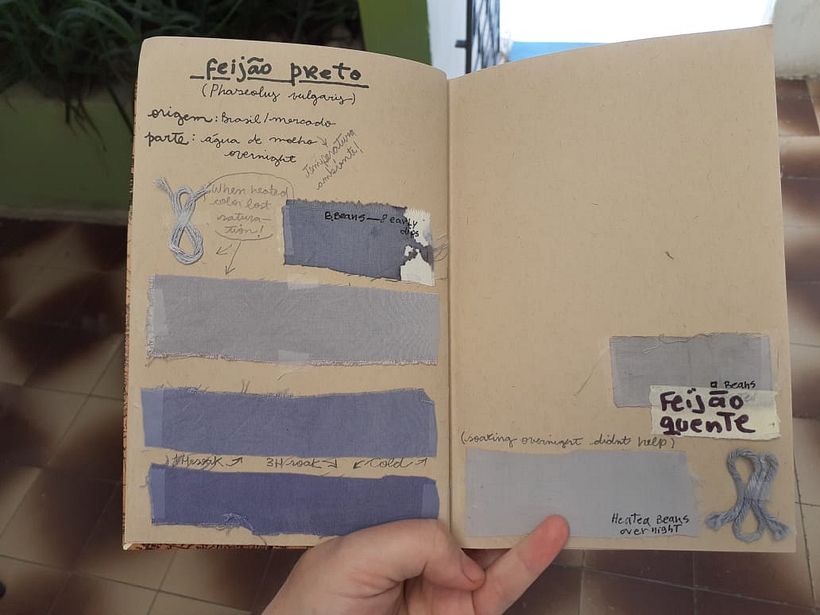 feijão preto
(Phaseolus vulgaris)
origem: Brasil/mercado
parte: água de molho
overnight
Temperatura
ambiente!
When heated
color lost
satura-
tion!
BBeans - 8 early
dips
Hsoak 3H soak Cold
a Beans
Feijão
quente
(soaking overnight didnt help)
Heated Beans
overnight